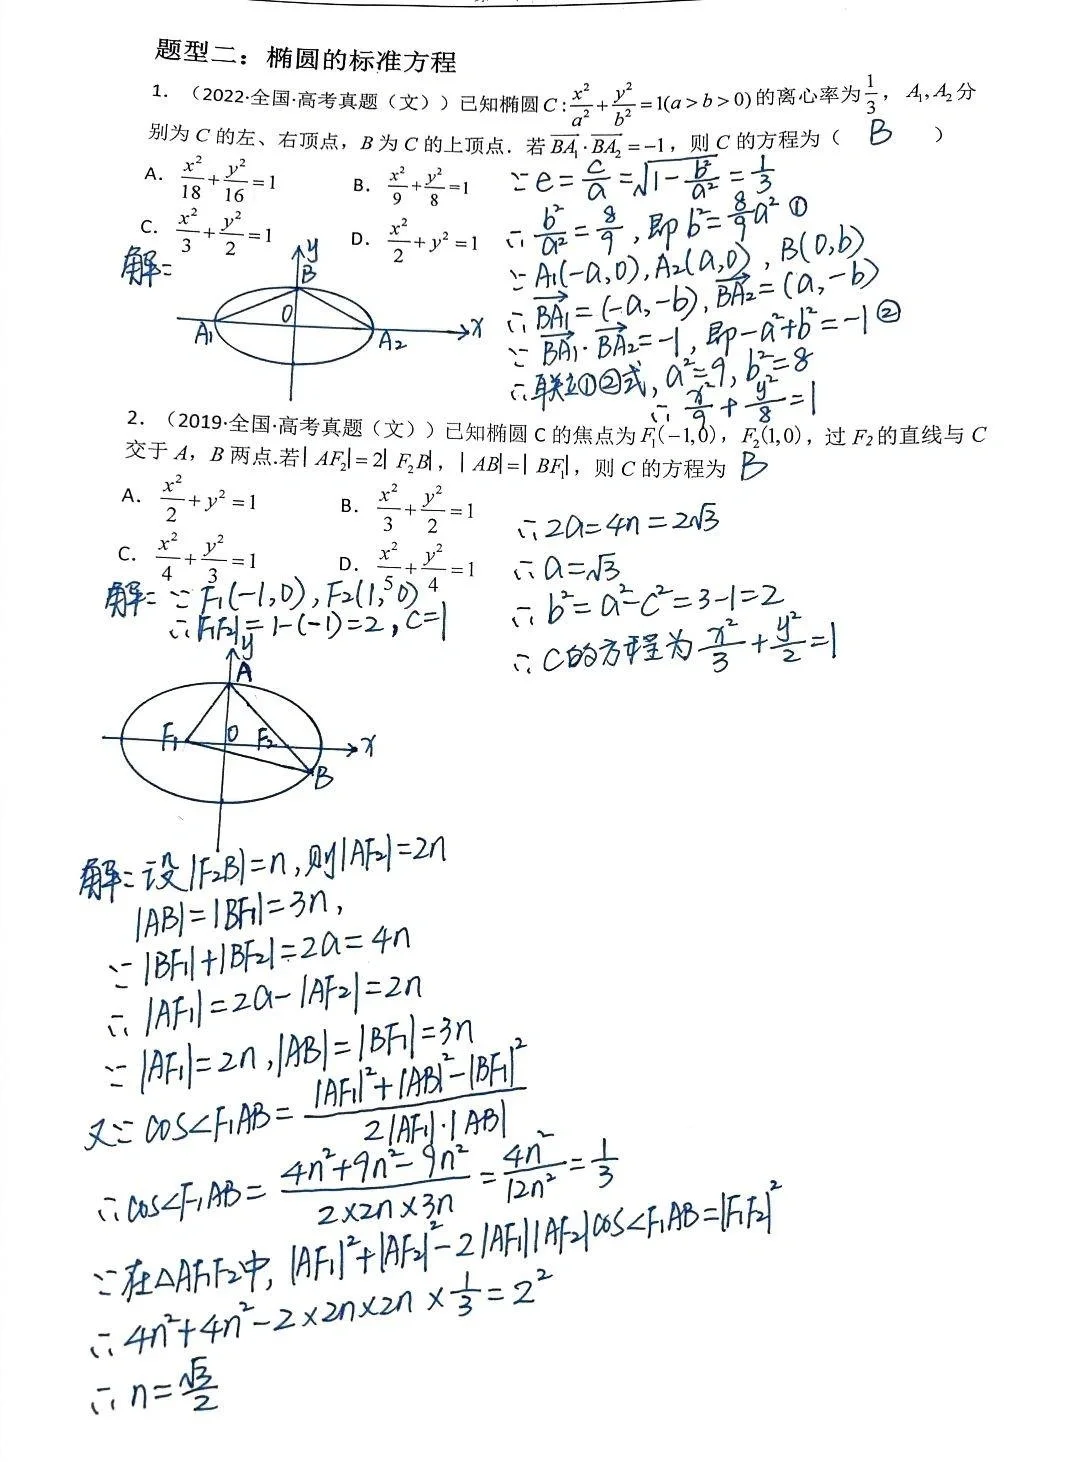 题型二：椭圆的标准方程
1. （2022·全国·高考真题（文））已知椭圆 C : x²/a² + y²/b² = 1(a > b > 0) 的离心率为 1/3， A₁, A₂ 分
别为 C 的左、右顶点，B 为 C 的上顶点．若 BA₁ · BA₂ = −1，则 C 的方程为（ B ）
A. x²/18 + y²/16 = 1
B. x²/9 + y²/8 = 1
C. x²/3 + y²/2 = 1
D. x²/2 + y² = 1
∵ e = c/a = √(1 − b²/a²) = 1/3
∴ b²/a² = 8/9 , 即 b² = 8/9 a² ①
∵ A₁(−a,0), A₂(a,0) , B(0,b)
∴ BA₁ = (−a,−b), BA₂ = (a,−b)
∵ BA₁ · BA₂ = −1 , 即 −a² + b² = −1 ②
∴ 联立①②式, a² = 9, b² = 8
∴ x²/9 + y²/8 = 1
解：
y
B
O
A₁
A₂
x
2. （2019·全国·高考真题（文））已知椭圆 C 的焦点为 F₁(−1,0)， F₂(1,0)，过 F₂ 的直线与 C
交于 A，B 两点.若| AF₂|= 2| F₂B|，| AB|=| BF₁|，则 C 的方程为 B
A. x²/2 + y² = 1
B. x²/3 + y²/2 = 1
C. x²/4 + y²/3 = 1
D. x²/5 + y²/4 = 1
解：∵ F₁(−1,0), F₂(1,0)
∴ |F₁F₂| = 1−(−1) = 2 , c = 1
y
A
F₁
O
F₂
x
B
解：设|F₂B| = n, 则|AF₂| = 2n
|AB| = |BF₁| = 3n,
∵ |BF₁| + |BF₂| = 2a = 4n
∴ |AF₁| = 2a − |AF₂| = 2n
∵ |AF₁| = 2n, |AB| = |BF₁| = 3n
又∵ cos∠F₁AB = (|AF₁|² + |AB|² − |BF₁|²)/(2|AF₁|·|AB|)
∴ cos∠F₁AB = (4n² + 9n² − 9n²)/(2×2n×3n) = 4n²/12n² = 1/3
∵ 在△AF₁F₂中, |AF₁|² + |AF₂|² − 2|AF₁||AF₂|cos∠F₁AB = |F₁F₂|²
∴ 4n² + 4n² − 2×2n×2n × 1/3 = 2²
∴ n = √3/2
∴ 2a = 4n = 2√3
∴ a = √3
∴ b² = a² − c² = 3 − 1 = 2
∴ C的方程为 x²/3 + y²/2 = 1